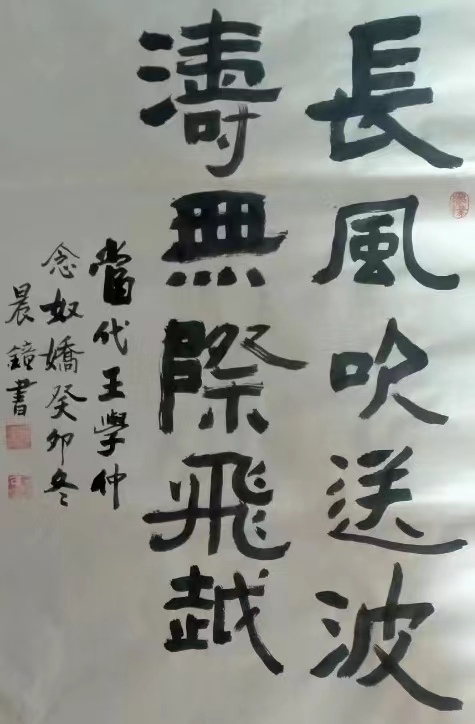 長風吹送波
濤無際飛越
當代王學仲
念奴嬌癸卯冬
晨鐘書